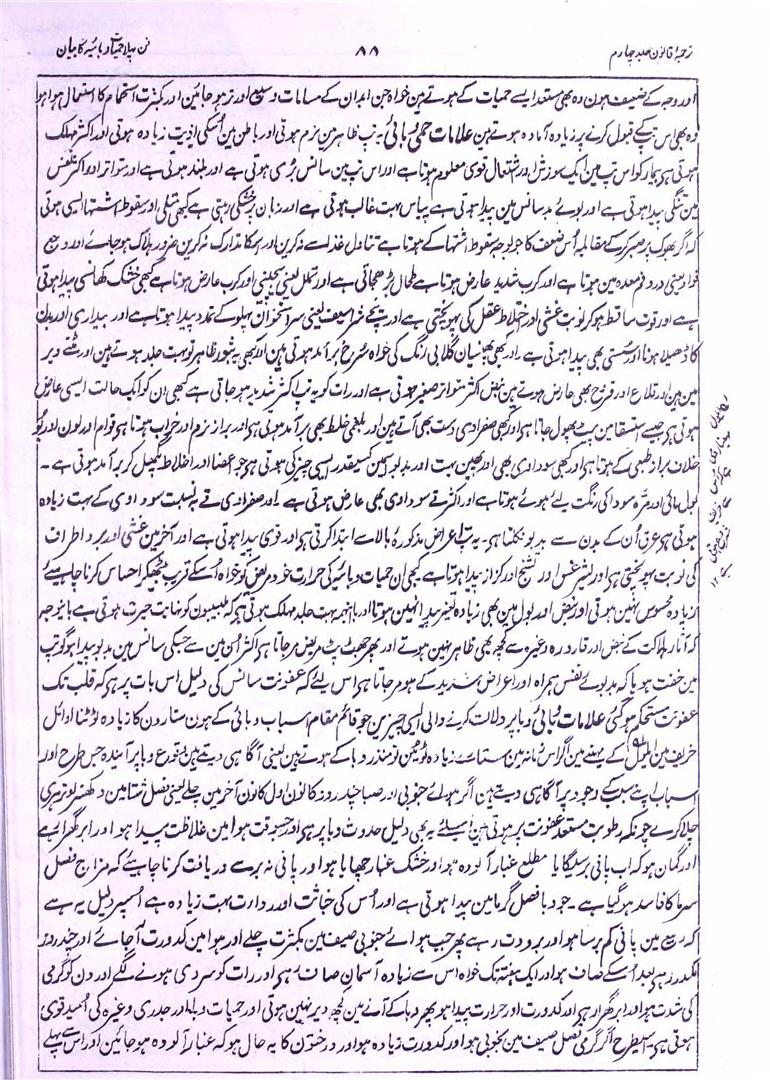 ترجمۂ قانون جلد چہارم ۸۸ فن پہلا حمیات وبائیہ کا بیان
اور وجہ کے ضعیف ہون وہ بھی مستعد ایسے حمیات کے ہوتے ہین خواہ جن ابدان کے مسامات وسیع اور تر ہو جائین اور کثرت استحمام کا استعمال ہوا ہو
وہ بھی اس تپ کے قبول کرنے پر زیادہ آمادہ ہوتے ہین علامات حمی وبائی یہ تپ ظاہر مین نرم ہوتی اور باطن مین اُسکی اذیت زیادہ ہوتی اور اکثر مہلک
ہوتی ہی بیمار کو اس تپ مین ایک سوزش اور اشتعال قوی معلوم ہوتا ہے اور اس تپ مین سانس بڑی ہوتی ہے اور بلند ہوتی ہے اور متواتر اور اکثر تنفس
مین تنگی پیدا ہوتی ہے اور بوے بد سانس مین پیدا ہوتی ہے پیاس بہت غالب ہوتی ہے اور زبان پر خشکی رہتی ہے کبھی متلی اور سقوط اشتہا ایسی ہوتی
کہ اگر بھوک پر صبر کرکے مقابلہ اُس ضعف کا جو بوجہ سقوط اشتہا کے ہوتا ہے تناول غذا سے نہ کرین اور اسکا تدارک نہ کرین ضرور ہلاک ہو جائے اور وجع
فواد یعنی درد فم معدہ مین ہوتا ہے اور کرب شدید عارض ہوتا ہے طحال بڑھ جاتی ہے اور تململ یعنی بیچینی اور کرب عارض ہوتا ہے کبھی خشک کھانسی پیدا ہوتی
ہے اور قوت ساقط ہو کر نوبت غشی اور اختلاط عقل کی پہونچتی ہے اور نیچے شراسیف یعنی سر استخوان پہلو کے تمدد پیدا ہوتا ہے اور بیداری اور بدن
کا ڈھیلا ہونا اور سستی بھی پیدا ہوتی ہے اور کبھی پھنسیان گلابی رنگ کی خواہ سرخ برآمد ہوتی ہین اور کبھی یہ بثور ظاہر تو بہت جلد ہوتے ہین اور مٹتے دیر
مین ہین اور قلاع اور قروح بھی عارض ہوتے ہین نبض اکثر متواتر صغیر ہوتی ہے اور رات کو یہ تپ اکثر شدید ہو جاتی ہے کبھی ان کو ایک حالت ایسی عارض
ہوتی ہی جیسے استسقا مین پیٹ پھول جاتا ہی اور کبھی صفراوی دست بھی آتے ہین اور بلغمی خلط بھی برآمد ہوتی ہی اور براز نرم اور خراب ہوتا ہی قوام اور لون اور بو
خلاف براز طبعی کے ہوتا ہی اور کبھی سوداوی بھی اور پھین بہت اور بدبو اسمین کسیقدر ایسی چیز کی ہوتی ہی جو اعضا اور اخلاط سے پگھل کر برآمد ہوتی ہے۔
بول مائی اور مرہ سودا کی رنگت لیے ہوئے ہوتا ہے اور اکثر قے سوداوی بھی عارض ہوتی ہے اور صفراوی قے بہ نسبت سوداوی کے بہت زیادہ
ہوتی ہی عرق اُن کے بدن سے بدبو نکلتا ہی۔ یہ تپ اعراض مذکورۂ بالا سے ابتدا کرتی ہی اور قوی پیدا ہوتی ہے اور آخر مین غشی اور برد اطراف
کی نوبت پہونچتی ہی اور لیثرغس اور تشنج اور کزاز پیدا ہوتا ہے کبھی ان حمیات وبائیہ کی حرارت خود مریض کو خواہ اُسکے قریب بیٹھکر احساس کرنا چاہے
زیادہ محسوس نہین ہوتی اور نبض اور بول مین بھی زیادہ تغیر پیدا نہین ہوتا اور باینہمہ بہت جلد مہلک ہوتی ہی کہ طبیبون کو نہایت حیرت ہوتی ہے باینوجہ
کہ آثار ہلاکت کے نبض اور قارورہ وغیرہ سے کچھ بھی ظاہر نہین ہوتے اور پھر جھٹ پٹ مریض مر جاتا ہی اکثر اُن مین سے جسکی سانس مین بدبو پیدا ہو گو تپ
مین خفت ہو یا کہ بدبوے نفس ہمراہ اور اعراض شدید کے ہو مر جاتا ہی اس لیے کہ عفونت سانس کی دلیل اس بات پر ہی کہ قلب تک
عفونت مستحکم ہو گئی علامات وبائی وبا پر دلالت کرنے والی ایسی چیزین جو قائم مقام اسباب وبائی کے ہون ستارون کا زیادہ ٹوٹنا اوائل
خریف مین ایلول کے مہینے مین اگر اس زمانہ مین ستارے زیادہ ٹوٹین تو منذر وبا کے ہوتے ہین یعنی آگاہی دیتے ہین وقوع وبا پر آیندہ جس طرح اور
اسباب اپنے مسبب کے وجود پر آگاہی دیتے ہین اگر ہوائے جنوبی اور صبا چند روز کانون اول کانون آخر مین چلے یعنی فصل شتا مین
چلا کرے چونکہ رطوبت مستعد عفونت پر ہوتی ہی اسلیے یہ بھی دلیل حدوث وبا پر ہی اور جسوقت ہوا مین غلاظت پیدا ہو اور ابر گھرا رہے
اور گمان ہو کہ اب پانی برسیگا یا مطلع غبار آلودہ ہو اور خشک غبار چھایا ہو اور پانی نہ برسے دریافت کرنا چاہیے کہ مزاج فصل
سرما کا فاسد ہو گیا ہے۔ جو وبا فصل گرما مین پیدا ہوتی ہے اور اُس کی خباثت اور ردارت بہت زیادہ ہے اُسپر دلیل یہ ہے
کہ ربیع مین پانی کم برسا ہو اور برودت رہے پھر جب ہوائے جنوبی صیف مین بکثرت چلے اور ہوا مین کدورت آجائے اور چند روز
مکدر رہے بعد اُسکے صاف ہو اور ایک ہفتہ تک خواہ اس سے زیادہ آسمان صاف رہے اور رات کو سردی ہونے لگے اور دن کو گرمی
کی شدت ہو اور ابر گھرا رہے اور کدورت اور حرارت پیدا ہو پھر وبا کے آنے مین کچھ دیر نہین ہوتی اور حمیات وبا اور جدری وغیرہ کی امید قوی
ہوتی ہی اسیطرح اگر گرمی فصل صیف مین بخوبی ہو اور کدورت زیادہ ہو اور درختون کا یہ حال ہو کہ غبار آلودہ ہو جائین اور اس سے پہلے